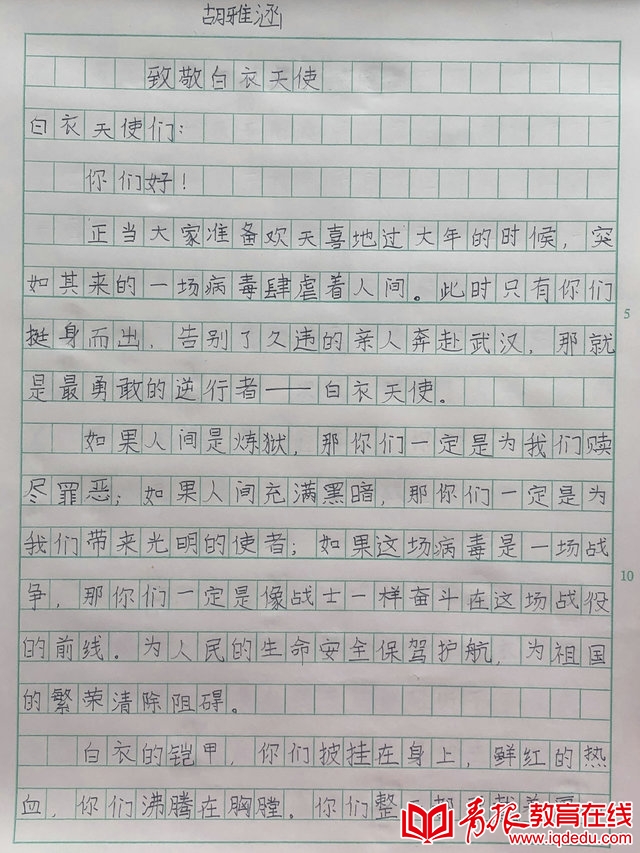 胡雅涵
致敬白衣天使
白衣天使们:
你们好!
正当大家准备欢天喜地过大年的时候,突
如其来的一场病毒肆虐着人间。此时只有你们
挺身而出,告别了久违的亲人奔赴武汉,那就
是最勇敢的逆行者——白衣天使。
如果人间是炼狱,那你们一定是为我们赎
尽罪恶;如果人间充满黑暗,那你们一定是为
我们带来光明的使者;如果这场病毒是一场战
争,那你们一定是像战士一样奋斗在这场战役
的前线.为人民的生命安全保驾护航,为祖国
的繁荣清除阻碍。
白衣的铠甲,你们披挂在身上,鲜红的热
血,你们沸腾在胸膛。你们整
5
10
青报教育在线
www.iqdedu.com